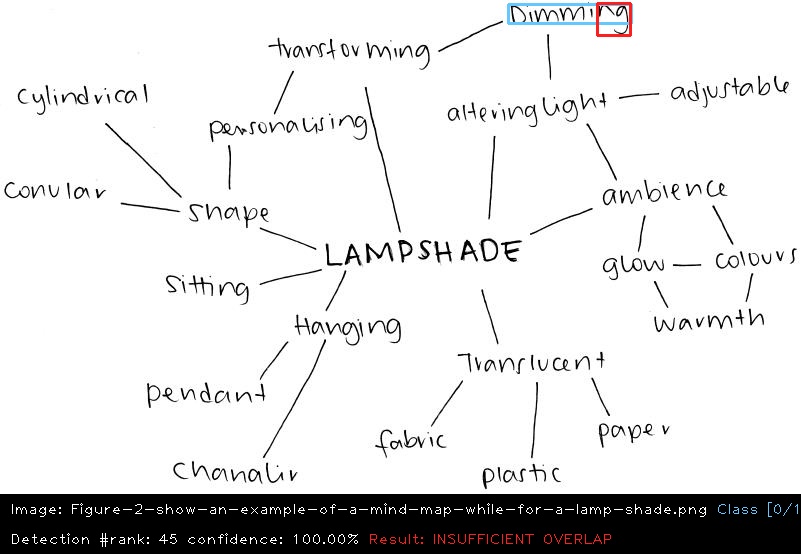 Dimming
transforming
cylindrical
adjustable
altering light
personalising
conular
ambience
shape
LAMPSHADE
glow
colours
sitting
warmth
Hanging
Translucent
pendant
fabric
paper
chanalir
plastic
Image: Figure-2-show-an-example-of-a-mind-map-while-for-a-lamp-shade.png Class [0/1
Detection #rank: 45 confidence: 100.00% Result: INSUFFICIENT OVERLAP